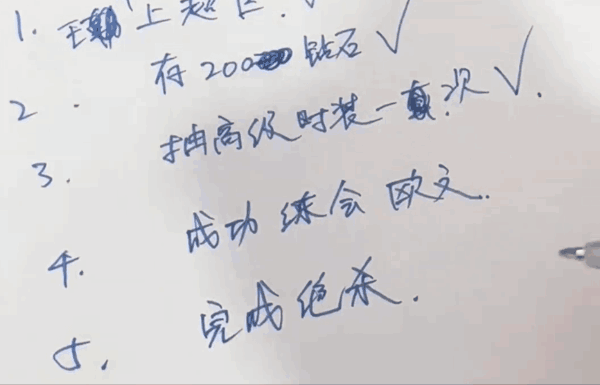 1. 上超巨. √
2. 存200 钻石 √
3. 抽高级时装一次 √.
4. 成功练会 欧文.
5. 完成绝杀.